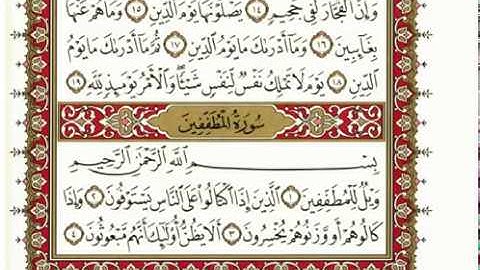 وَإِنَّ ٱلْفُجَّارَ لَفِى جَحِيمٍ ١٤ يَصْلَوْنَهَا يَوْمَ ٱلدِّينِ ١٥ وَمَا هُمْ عَنْهَا
بِغَآئِبِينَ ١٦ وَمَآ أَدْرَىٰكَ مَا يَوْمُ ٱلدِّينِ ١٧ ثُمَّ مَآ أَدْرَىٰكَ مَا يَوْمُ
ٱلدِّينِ ١٨ يَوْمَ لَا تَمْلِكُ نَفْسٌ لِّنَفْسٍ شَيْـًٔا وَٱلْأَمْرُ يَوْمَئِذٍ لِّلَّهِ ١٩
سُورَةُ المُطَفِّفِينَ
بِسْمِ ٱللَّهِ ٱلرَّحْمَٰنِ ٱلرَّحِيمِ
وَيْلٌ لِّلْمُطَفِّفِينَ ١ ٱلَّذِينَ إِذَا ٱكْتَالُوا۟ عَلَى ٱلنَّاسِ يَسْتَوْفُونَ ٢ وَإِذَا
كَالُوهُمْ أَو وَّزَنُوهُمْ يُخْسِرُونَ ٣ أَلَا يَظُنُّ أُو۟لَٰٓئِكَ أَنَّهُم مَّبْعُوثُونَ ٤